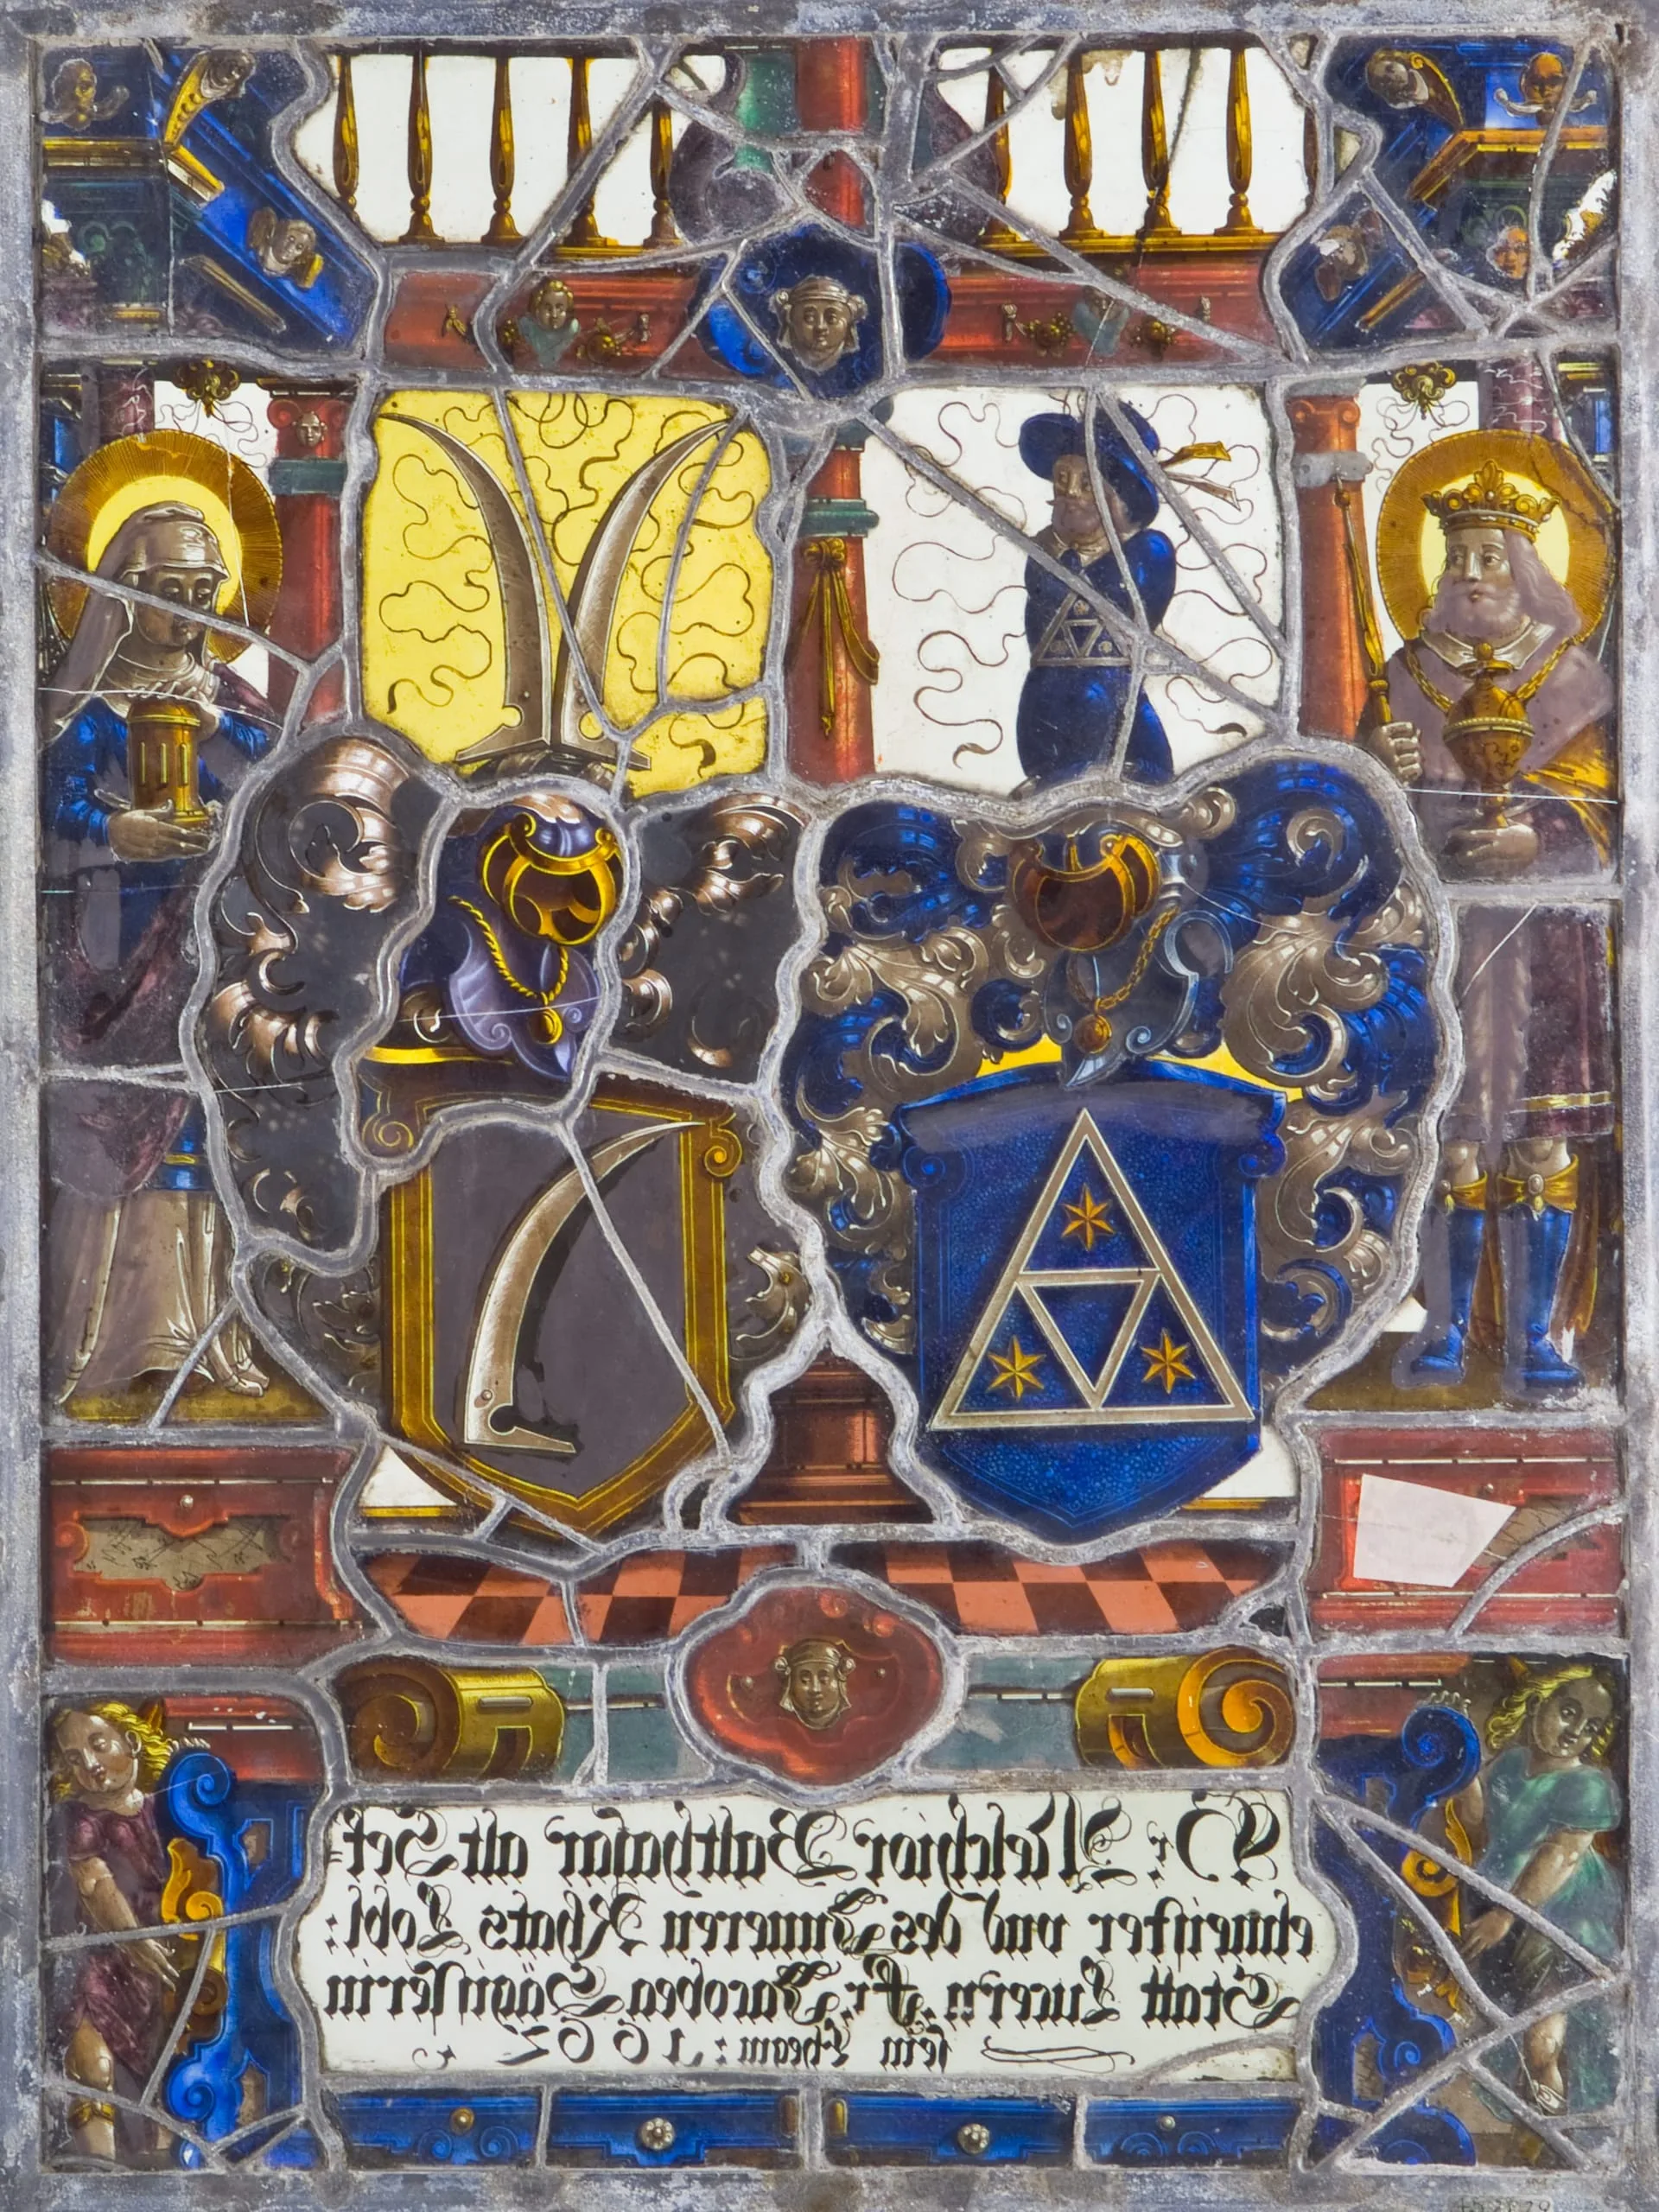 Hr: Melchior Balthasar alt Sek=
elmeister vnd des Inneren Rhats Lobl:
Statt Lucern. Fr: Jacobea Sägisserin
sein Ehegm: 1662